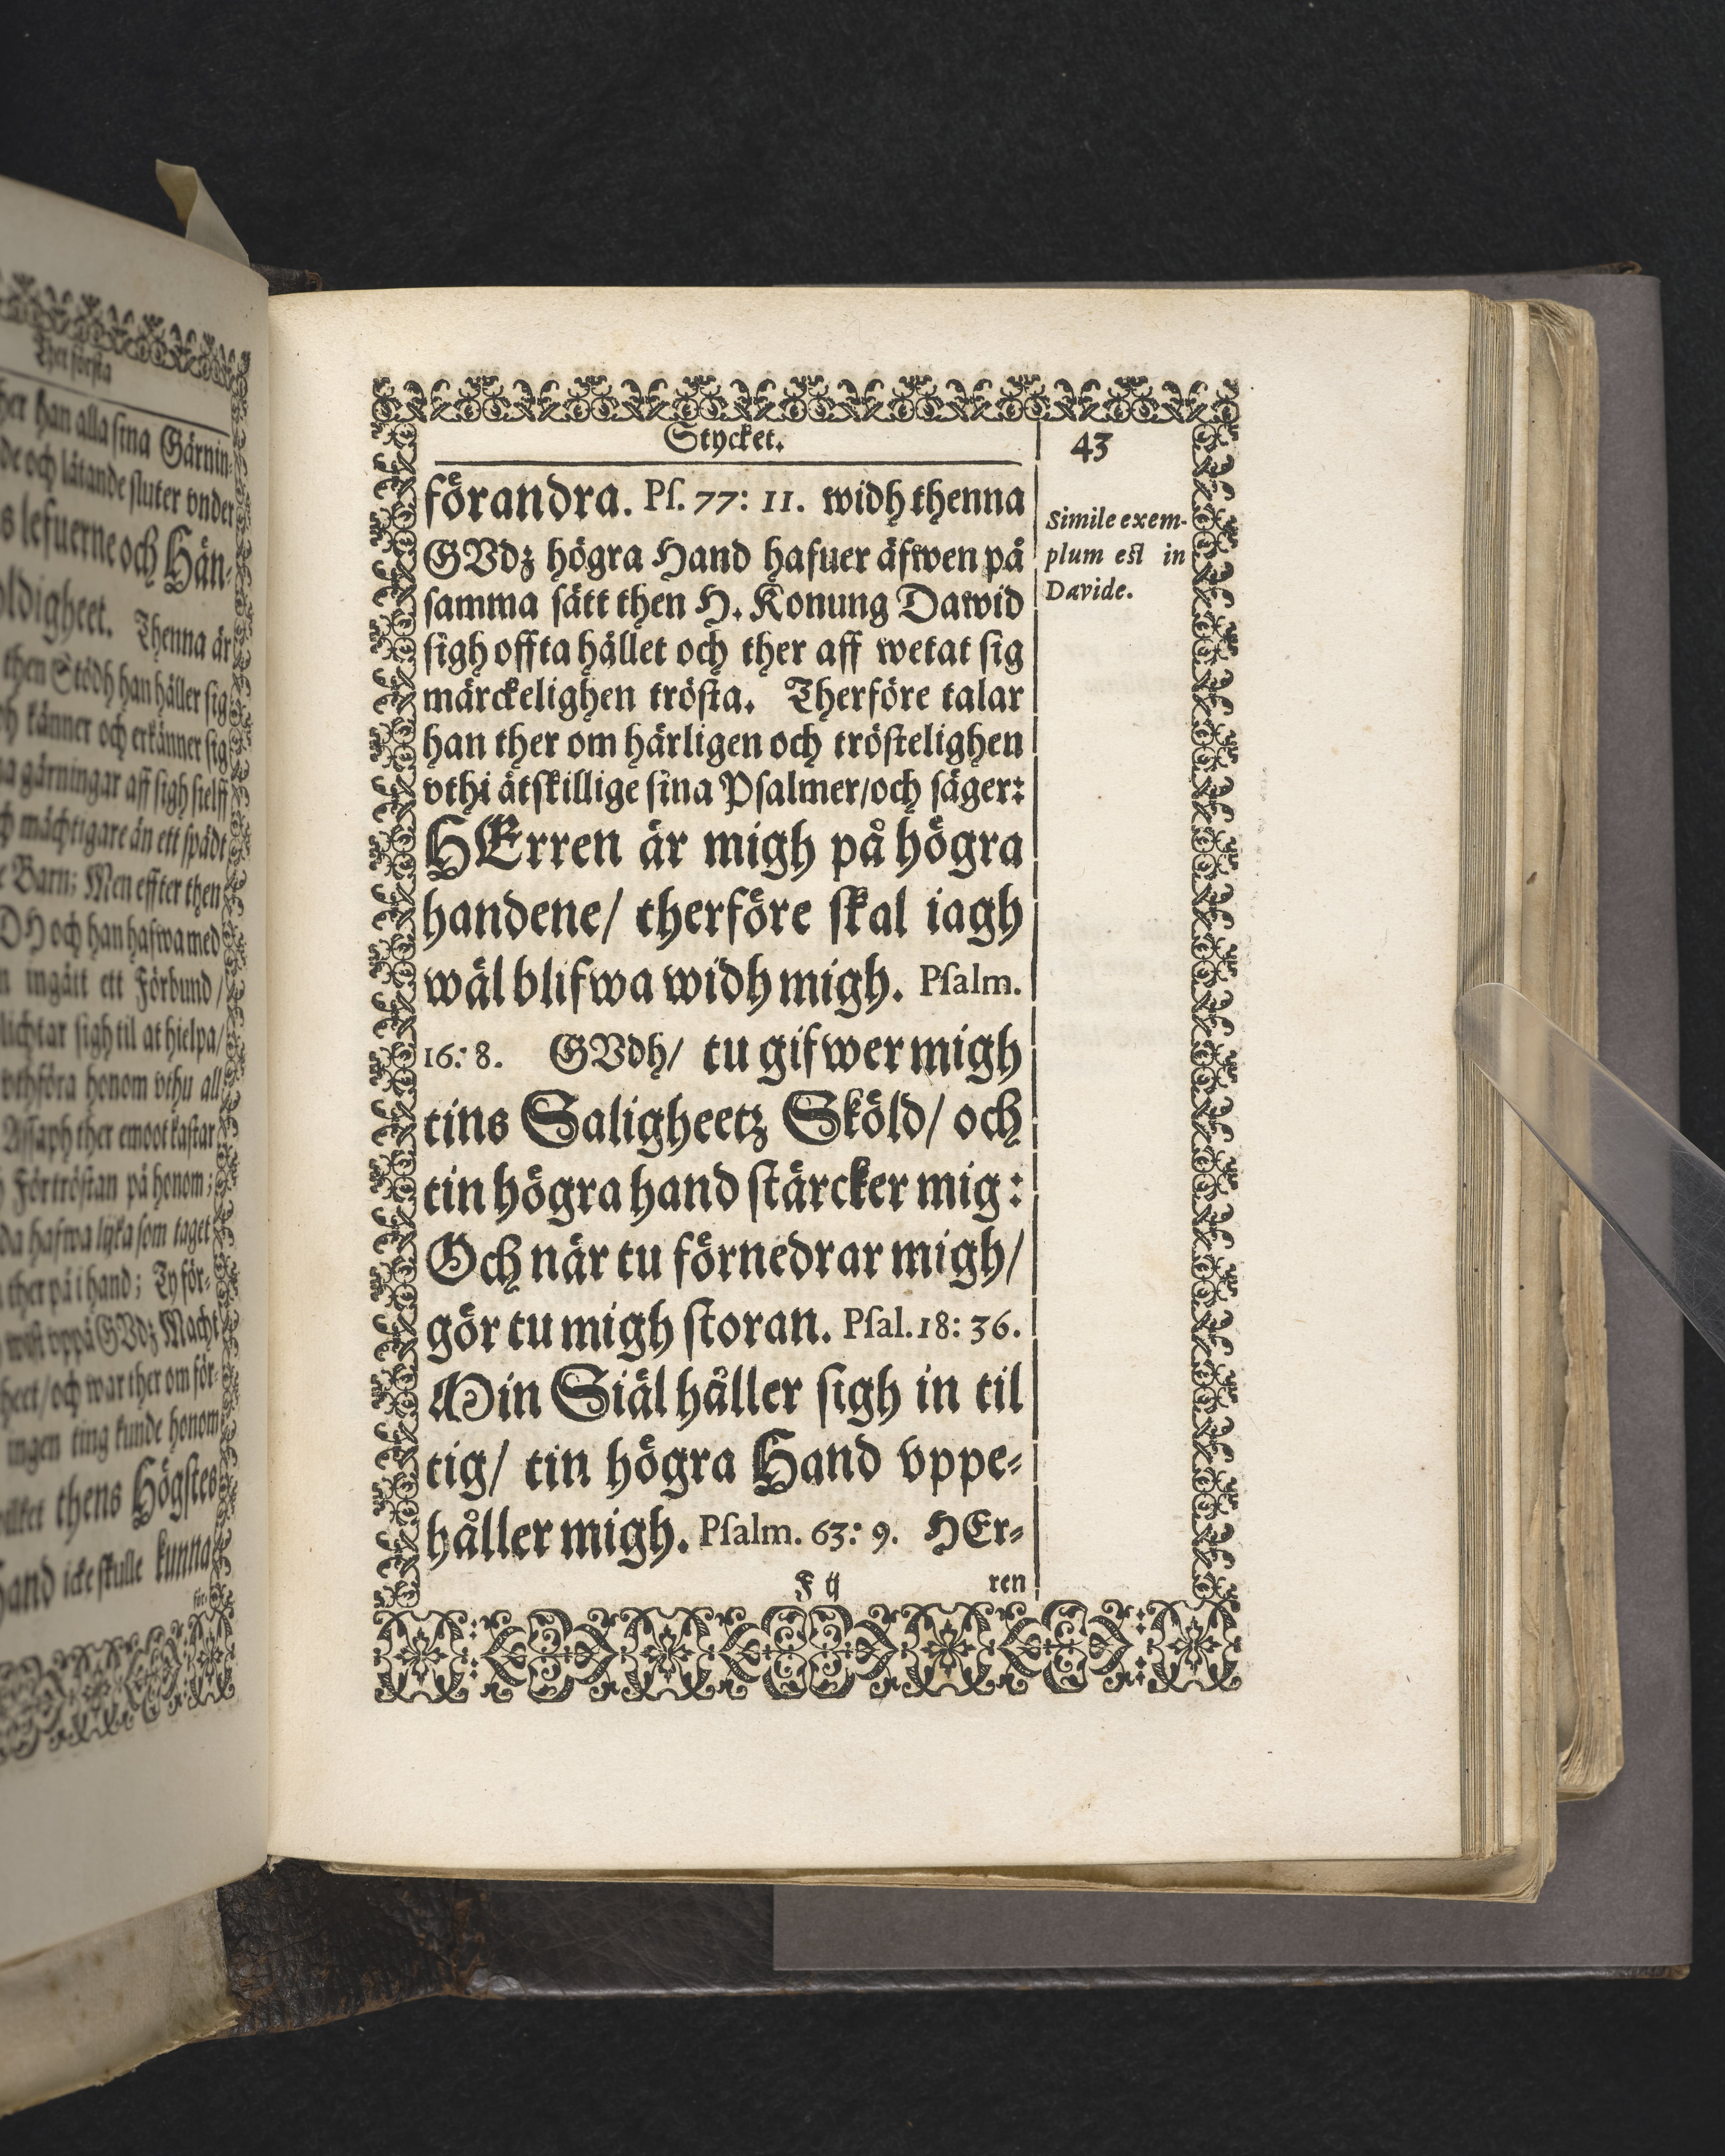 Thet första
her han alla sina Gärnin-
de och låtande sluter vnder
s lefuerne och Hän-
oldigheet. Thenna är
then Stödh han håller sig
känner och erkänner sig
gärningar aff sigh sielff
mächtigare än ett spädt
Barn; Men effter then
och han hafwa med
ingått ett Förbund/
lichtar sigh til at hielpa/
vthföra honom vthu all
Assaph ther emoot kastar
Förtröstan på honom;
da hafwa lijka som taget
ther på i hand; Ty för-
wist vppå GVdz Macht
heet/ och war ther om för-
ingen ting kunde honom
thens Högstes
Hand icke skulle kunna
för-
Stycket.
43
förandra. Pſ. 77: 11. widh thenna
GVdz högra Hand hafuer äfwen på
ſamma ſätt then H. Konung Dawid
ſigh offta hållet och ther aff wetat ſig
märckelighen tröſta. Therföre talar
han ther om härligen och tröſtelighen
vthi åtſkillige ſina Pſalmer/och ſäger:
HErren är migh på högra
handene/ therföre ſkal iagh
wäl blifwa widh migh. Pſalm.
16: 8. GVdh/ tu gifwer migh
tins Saligheetz Sköld/ och
tin högra hand ſtärcker mig:
Och när tu förnedrar migh/
gör tu migh ſtoran. Pſal. 18: 36.
Min Siäl håller ſigh in til
tig/ tin högra Hand vppe-
håller migh. Pſalm. 63: 9. HEr-
F ij ren
Simile exem-
plum eſt in
Davide.